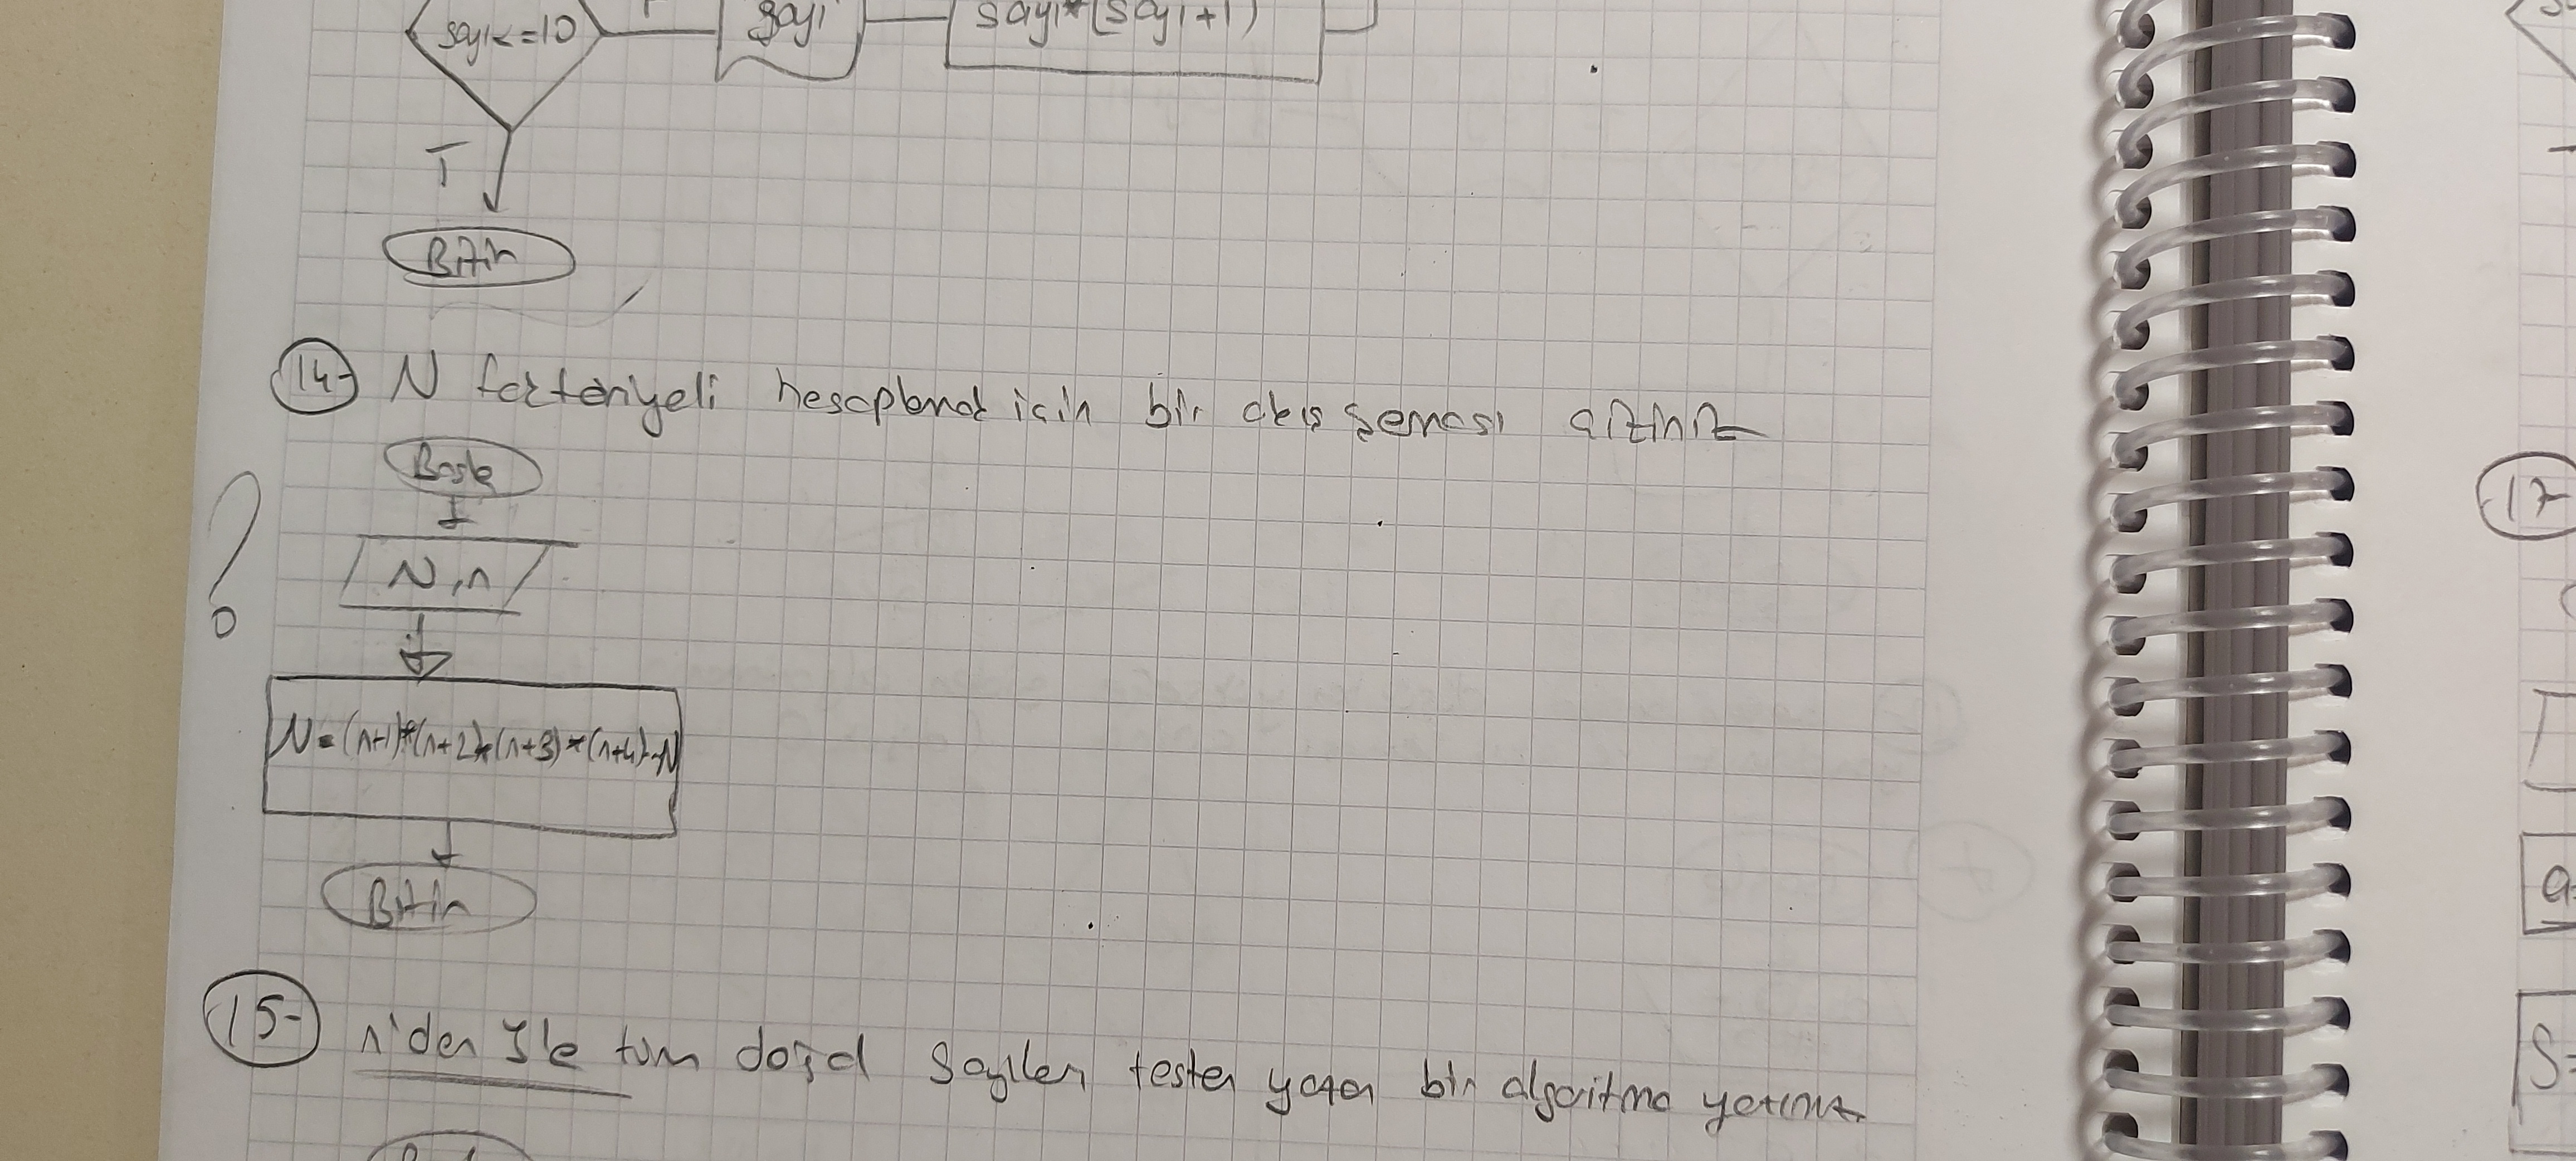 sayı<=10
sayı
sayı*(sayı+1)
T
Bitir
14- N faktöriyeli hesaplamak için bir akış şeması çiziniz
Başla
N, n
N=(n+1)*(n+2)*(n+3)*(n+4)..N
Bitir
15- n'den 1'e tüm doğal sayıları tersten yazan bir algoritma yazınız
17
S=